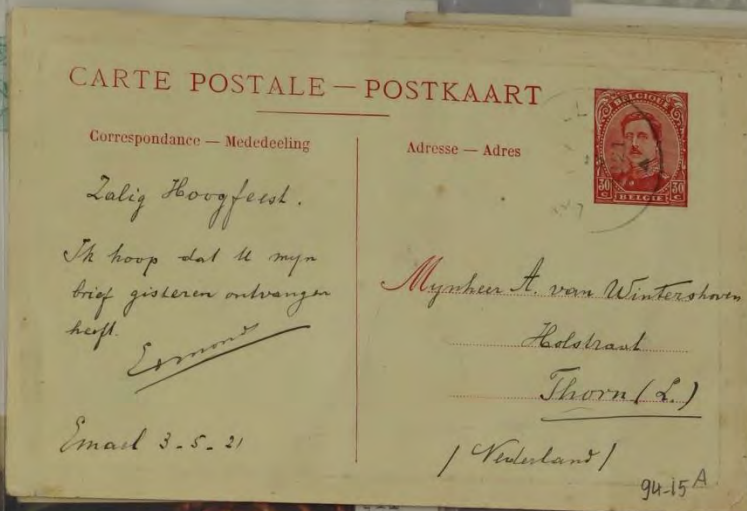 CARTE POSTALE — POSTKAART
Correspondance — Mededeeling
Zalig Hoogfeest.
Ik hoop dat U mijn
brief gisteren ontvangen
heeft.
Edmond
Emael 3-5-21
Adresse — Adres
BELGIQUE
30 C 30 C
BELGIE
Mynheer A. van Wintershoven
Holstraat
Thorn (L.)
/ Nederland /
94-15 A